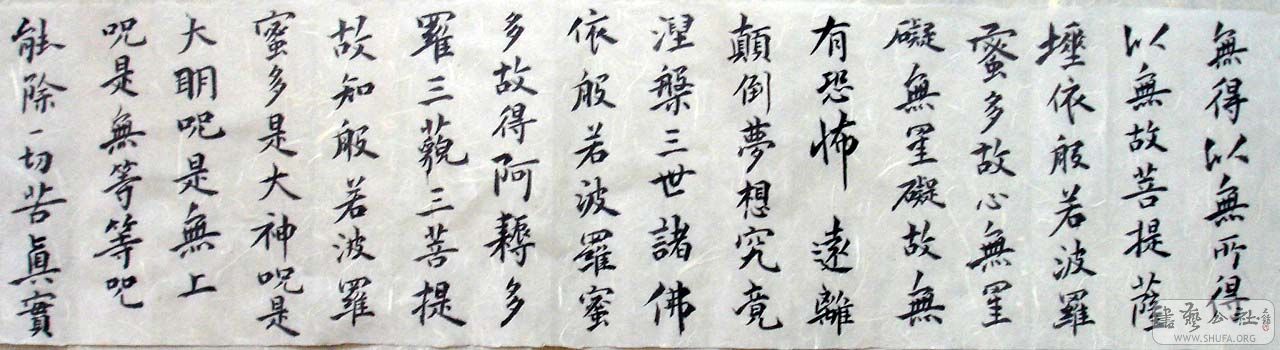 無得以無所得
以無故菩提薩
埵依般若波羅
蜜多故心無罣
礙無罣礙故無
有恐怖遠離
顛倒夢想究竟
涅槃三世諸佛
依般若波羅蜜
多故得阿耨多
羅三藐三菩提
故知般若波羅
蜜多是大神呪是
大明呪是無上
呪是無等等呪
能除一切苦眞實
書藝公社
WWW.SHUFA.ORG